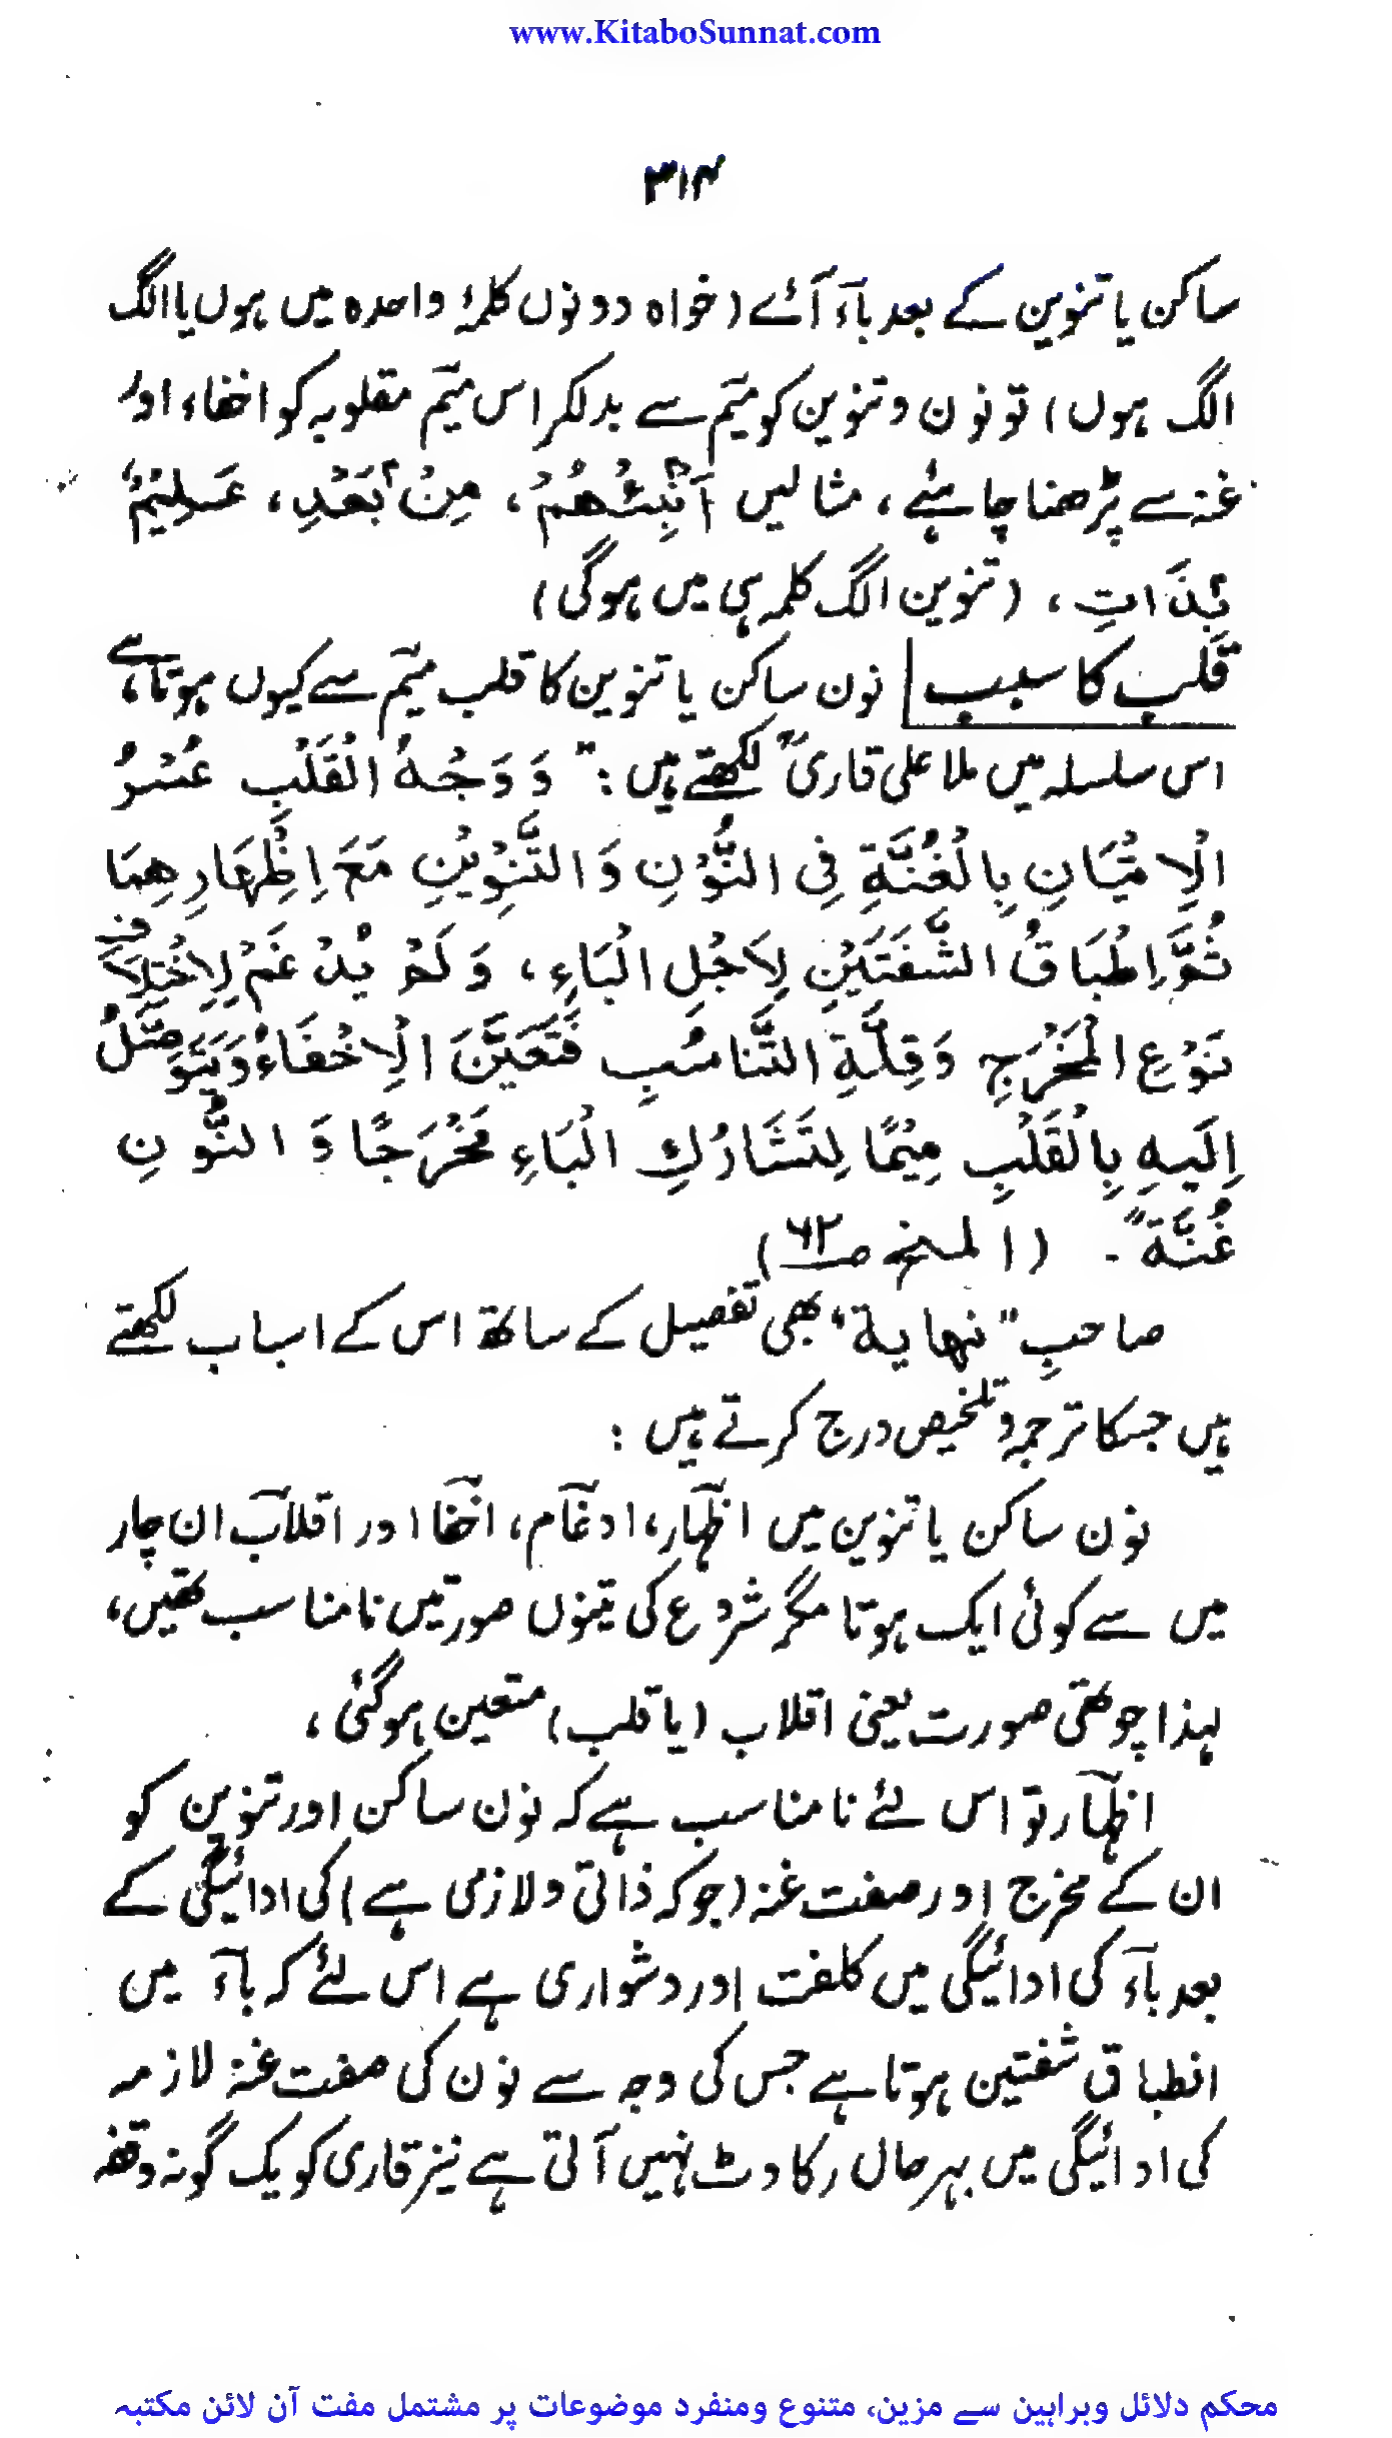 www.KitaboSunnat.com
۳۱۴
ساکن یا تنوین کے بعد بآء آئے (خواہ دونوں کلمۂ واحدہ میں ہوں یا الگ
الگ ہوں) تو نون و تنوین کو میٓم سے بدلکر اس میٓم مقلوبہ کو اخفاء اور
غنہ سے پڑھنا چاہیئے، مثالیں اَنْۢبِئْهُمْ، مِنْۢ بَعْدِ، عَلِيْمٌۢ
بِذَاتِ، (تنوین الگ کلمہ ہی میں ہوگی)
قلب کا سبب نون ساکن یا تنوین کا قلب میٓم سے کیوں ہوتا ہے،
اس سلسلہ میں ملا علی قاریؒ لکھتے ہیں: "وَوَجْهُ الْقَلْبِ عُسْرُ
الْاِتْيَانِ بِالْغُنَّةِ فِى النُّوْنِ وَالتَّنْوِيْنِ مَعَ اِظْهَارِهِمَا
ثُمَّ اِطْبَاقُ الشَّفَتَيْنِ لِاَجْلِ الْبَاءِ، وَلَمْ يُدْغَمْ لِاِخْتِلَافِ
نَوْعِ الْمَخْرَجِ وَقِلَّةِ التَّنَاسُبِ فَتَعَيَّنَ الْاِخْفَاءُ وَيَتَوَصَّلُ
اِلَيْهِ بِالْقَلْبِ مِيْمًا لِتَشَارُكِ الْبَاءِ مَخْرَجًا وَ النُّوْنِ
غُنَّةً"۔ (المنح ص۶۲)
صاحبِ "نہایة" بھی تفصیل کے ساتھ اس کے اسباب لکھتے
ہیں جسکا ترجمہ و تلخیص درج کرتے ہیں:
نون ساکن یا تنوین میں اظہٓار، ادغٓام، اخفٓا اور اقلآب ان چار
میں سے کوئی ایک ہوتا مگر شروع کی تینوں صورتیں نامناسب تھیں،
لہذا چوتھی صورت یعنی اقلاب (یا قلب) متعین ہوگئی،
اظہٓار تو اس لئے نامناسب ہے کہ نون ساکن اور تنوین کو
ان کے مخرج اور صفت غنہ (جو کہ ذاتی و لازمی ہے) کی ادائیگی کے
بعد بآء کی ادائیگی میں کلفت اور دشواری ہے اس لئے کہ بآء میں
انطباق شفتین ہوتا ہے جس کی وجہ سے نون کی صفت غنہ لازمہ
کی ادائیگی میں بہرحال رکاوٹ نہیں آتی ہے نیز قاری کو یک گونہ وقفہ
محکم دلائل وبراہین سے مزین، متنوع ومنفرد موضوعات پر مشتمل مفت آن لائن مکتبہ